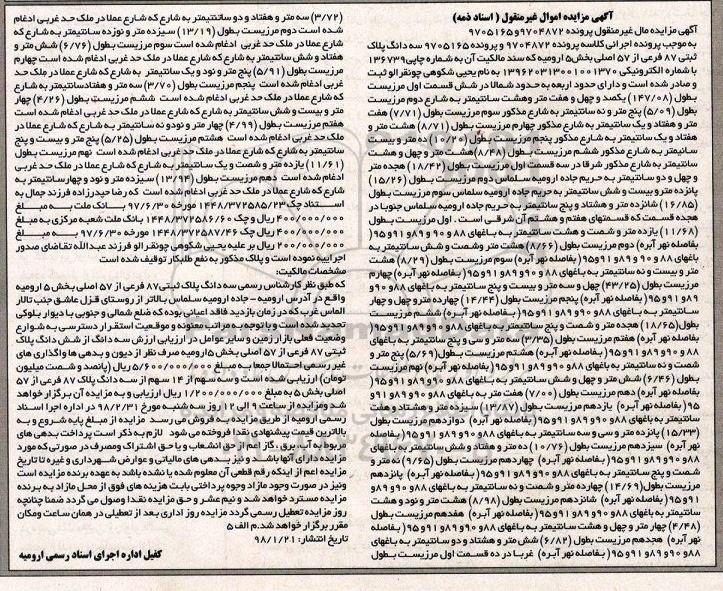 آگهی مزایده اموال غیرمنقول ( اسناد ذمه)
آگهی مزایده مال غیرمنقول پرونده ۹۷۰۴۸۷۲و۹۷۰۵۱۶۵
به موجب پرونده اجرائی کلاسه پرونده ۹۷۰۴۸۷۲ و پرونده ۹۷۰۵۱۶۵ سه دانگ پلاک
ثبتی ۸۷ فرعی از ۵۷ اصلی بخش۵ ارومیه که سند مالکیت آن به شماره چاپی۱۳۶۷۳۹
با شماره الکترونیکی ۱۳۹۶۲۰۳۱۳۰۰۱۰۰۱۳۷۰ به نام یحیی شکوهی چونقرالو ثبت
و صادر شده است و دارای حدود اربعه به حدود شمالا در شش قسمت اول مرزیست
بطول (۱۴۷/۰۸) یکصد و چهل و هفت متر وهشت سانتیمتر به شارع دوم مرزیست
بطول (۵/۰۹) پنج متر و نه سانتیمتر به شارع مذکور سوم مرزیست بطول (۷/۷۱) هفت
متر و هفتاد و یک سانتیمتر به شارع مذکور چهارم مرزیست بطول (۸/۷۱) هشت متر و
هفتاد و یک سانتیمتر به شارع مذکور پنجم مرزیست بطول (۱۰/۲۰) ده متر و بیست
سانتیمتر به شارع مذکور ششم مرزیست بطول (۸/۴۸) هشت متر و چهل و هشت
سانتیمتر به شارع مذکور شرقا در سه قسمت اول مرزیست بطول (۱۸/۴۲) هجده متر
و چهل و دو سانتیمتر به حریم جاده ارومیه سلماس دوم مرزیست بطول (۱۵/۲۶)
پانزده متر و بیست و شش سانتیمتر به حریم جاده ارومیه سلماس سوم مرزیست بطول
(۱۶/۸۵) شانزده متر و هشتاد و پنج سانتیمتر به حریم جاده ارومیه سلماس جنوبا در
هجده قسمت که قسمتهای هفتم و هشتم آن شرقی است . اول مرزیست بطول
(۱۱/۶۸) یازده متر و شصت و هشت سانتیمتر به باغهای ۸۸ و ۹۰ و ۸۹ و ۹۱و۹۵(
بفاصله نهر آبره) دوم مرزیست بطول (۸/۶۶) هشت متر وشصت و شش سانتیمتر به
باغهای ۸۸ و ۹۰ و ۸۹ و ۹۱و ۹۵( بفاصله نهر آبره) سوم مرزیست بطول (۸/۲۹) هشت
متر و بیست و نه سانتیمتر به باغهای ۸۸ و ۹۰ و ۸۹ و ۹۱و ۹۵( بفاصله نهر آبره) چهارم
مرزیست بطول (۴۳/۲۵) چهل و سه متر و بیست و پنج سانتیمتر به باغهای ۸۸و ۹۰ و
۸۹ و ۹۱و ۹۵( بفاصله نهر آبره) پنجم مرزیست بطول (۱۴/۴۴) چهارده متر و چهل و چهار
سانتیمتر به باغهای ۸۸ و ۹۰ و ۸۹ و ۹۱و ۹۵( بفاصله نهر آبره) ششم مرزیست
بطول(۱۸/۶۵) هجده متر و شصت و پنج سانتیمتر به باغهای ۸۸و ۹۰ و ۸۹ و ۹۱و ۹۵(
بفاصله نهر آبره) هفتم مرزیست بطول (۳/۳۵) سه متر و سی و پنج سانتیمتر به باغهای
۸۸ و ۹۰ و ۸۹ و ۹۱و ۹۵( بفاصله نهر آبره) هشتم مرزیست بطول (۵/۶۹) پنج متر و
شصت و نه سانتیمتر به باغهای ۸۸ و ۹۰ و ۸۹ و ۹۱و ۹۵( بفاصله نهر آبره) نهم مرزیست
بطول (۶/۴۶) شش متر و چهل و شش سانتیمتر به باغهای ۸۸ و ۹۰ و ۸۹ و ۹۱و ۹۵(
بفاصله نهر آبره) دهم مرزیست بطول (۷/۰۰) هفت متر به باغهای ۸۸ و ۹۰ و ۸۹ و ۹۱و
۹۵( بفاصله نهر آبره) یازدهم مرزیست بطول (۱۳/۸۷) سیزده متر و هشتاد و هفت
سانتیمتر به باغهای ۸۸و ۹۰ و ۸۹ و ۹۱و ۹۵( بفاصله نهر آبره) دوازدهم مرزیست بطول
(۱۵/۳۳) پانزده متر و سی و سه سانتیمتر به باغهای ۸۸و ۹۰ و ۸۹ و ۹۱و ۹۵( بفاصله
نهر آبره) سیزدهم مرزیست بطول (۱۰/۷۶) ده متر و هفتاد و شش سانتیمتر به باغهای
۸۸ و ۹۰ و ۸۹ و ۹۱و ۹۵( بفاصله نهر آبره) چهاردهم مرزیست بطول (۹/۶۵) نه متر و
شصت و پنج سانتیمتر به باغهای ۸۸و ۹۰ و ۸۹ و ۹۱و ۹۵( بفاصله نهر آبره) پانزدهم
مرزیست بطول (۱۴/۶۹) چهارده متر و شصت و نه سانتیمتر به باغهای ۸۸ و ۹۰ و ۸۹ و
۹۱و ۹۵( بفاصله نهر آبره) شانزدهم مرزیست بطول (۸/۹۸) هشت متر و نود و هشت
سانتیمتر به باغهای ۸۸ و ۹۰ و ۸۹ و ۹۱و ۹۵( بفاصله نهر آبره) هفدهم مرزیست بطول
(۴/۴۸) چهار متر و چهل و هشت سانتیمتر به باغهای ۸۸ و ۹۰ و ۸۹ و ۹۱و ۹۵( بفاصله
نهر آبره) هجدهم مرزیست بطول (۶/۸۲) شش متر و هشتاد و دو سانتیمتر به باغهای
۸۸ و ۹۰ و ۸۹ و ۹۱و ۹۵( بفاصله نهر آبره) غربا در ده قسمت اول مرزیست بطول
(۳/۷۲) سه متر و هفتاد و دو سانتتیمتر به شارع که شارع عملا در ملک حد غربی ادغام
شده است دوم مرزیست بطول (۱۳/۱۹) سیزده متر و نوزده سانتیمتر به شارع که
شارع عملا در ملک حد غربی ادغام شده است سوم مرزیست بطول (۶/۷۶) شش متر و
هفتاد و شش سانتیمتر به شارع که شارع عملا در ملک حد غربی ادغام شده است چهارم
مرزیست بطول (۵/۹۱) پنج متر و نود و یک سانتیمتر به شارع که شارع عملا در ملک حد
غربی ادغام شده است پنجم مرزیست بطول (۳/۷۰) سه متر و هفتادسانتیمتر به شارع
که شارع عملا در ملک حد غربی ادغام شده است ششم مرزیست بطول (۴/۲۶) چهار
متر و بیست و شش سانتیمتر به شارع که شارع عملا در ملک حد غربی ادغام شده است
هفتم مرزیست بطول (۴/۹۹) چهار متر و نودو نه سانتیمتر به شارع که شارع عملا در
ملک حد غربی ادغام شده است هشتم مرزیست بطول (۵/۲۵) پنج متر و بیست و پنج
سانتیمتر به شارع که شارع عملا در ملک حد غربی ادغام شده است نهم مرزیست بطول
(۱۱/۶۱) یازده متر و شصت و یک سانتیمتر به شارع که شارع عملا در ملک حد غربی
ادغام شده است دهم مرزیست بطول (۱۳/۹۴) سیزده متر و نود و چهارسانتیمتر به
شارع که شارع عملا در ملک حد غربی ادغام شده است که رضا حیدرزاده فرزند جمال به
استناد چک ۱۴۴۸/۳۷۲۵۸۵/۲۳ مورخه ۹۷/۶/۳۰ بانک ملت به مبلغ
۴۰۰/۰۰۰/۰۰۰ ریال و چک ۱۴۴۸/۳۷۲۵۸۶/۶۰ بانک ملت شعبه مرکزی به مبلغ
۴۰۰/۰۰۰/۰۰۰ ریال و چک ۱۴۴۸/۳۷۲۵۸۷/۴۶ مورخه ۹۷/۶/۳۰ به مبلغ
۲۰۰/۰۰۰/۰۰۰ ریال بر علیه یحیی شکوهی چونقرالو فرزند عبدالله تقاضای صدور
اجراییه نموده است و پلاک مذکور به نفع طلبکار توقیف شده است
مشخصات مالکیت:
که طبق نظر کارشناس رسمی سه دانگ پلاک ثبتی ۸۷ فرعی از ۵۷ اصلی بخش ۵ ارومیه
واقع در آدرس ارومیه – جاده ارومیه سلماس بالاتر از روستای قزل عاشق جنب تالار
الماس غرب که در زمان بازدید فاقد اعیانی بوده که ضلع شمالی و جنوبی با دیوار بلوکی
تحدید شده است و باتوجه به مراتب معنونه و موقعیت استقرار دسترسی به شوارع
وضعیت فعلی بازار زمین و سایر عوامل در ارزیابی ارزش سه دانگ از شش دانگ پلاک
ثبتی ۸۷ فرعی از ۵۷ اصلی بخش ۵ارومیه صرف نظر از دیون و بدهی ها و واگذاری های
غیر رسمی احتمالا جمعا به مبلغ ۵/۶۰۰/۰۰۰/۰۰۰ ریال (پانصد و شصت میلیون
تومان) ارزیابی شده است و سه سهم از ۱۴ سهم از سه دانگ پلاک ۸۷ فرعی از ۵۷
اصلی بخش ۵ به مبلغ ۱/۲۰۰/۰۰۰/۰۰۰ ریال ارزیابی و به مزایده آن برگزار خواهد
شد و مزایده از ساعت ۹ الی ۱۲ روز سه شنبه مورخ ۹۸/۲/۳۱ در اداره اجرا اسناد
رسمی ارومیه از طریق مزایده به فروش می رسد مزایده از مبلغ پایه شروع و به
بالاترین قیمت پیشنهادی نقدا فروخته می شود لازم به ذکر است پرداخت بدهی های
مربوط به آب برق، گاز اعم از حق انشعاب و یا حق اشتراک ومصرف در صورتی که مورد
مزایده دارای آنها باشد و نیز بدهی های مالیاتی و عوارض شهرداری و غیره تا تاریخ
مزایده اعم از اینکه رقم قطعی آن معلوم شده یا نشده باشد به عهده برنده مزایده است
ونیز در صورت وجود مازاد وجوه پرداختی بابت هزینه های فوق از محل مازاد به برنده
مزایده مسترد خواهد شد و نیم عشر و حق مزایده نقدا وصول می گردد ضمنا چنانچه
روز مزایده تعطیل رسمی گردد مزایده روز اداری بعد از تعطیلی در همان ساعت ومکان
مقرر برگزار خواهد شد.م الف ۵
تاریخ انتشار: ۹۸/۱/۲۱
کفیل اداره اجرای اسناد رسمی ارومیه